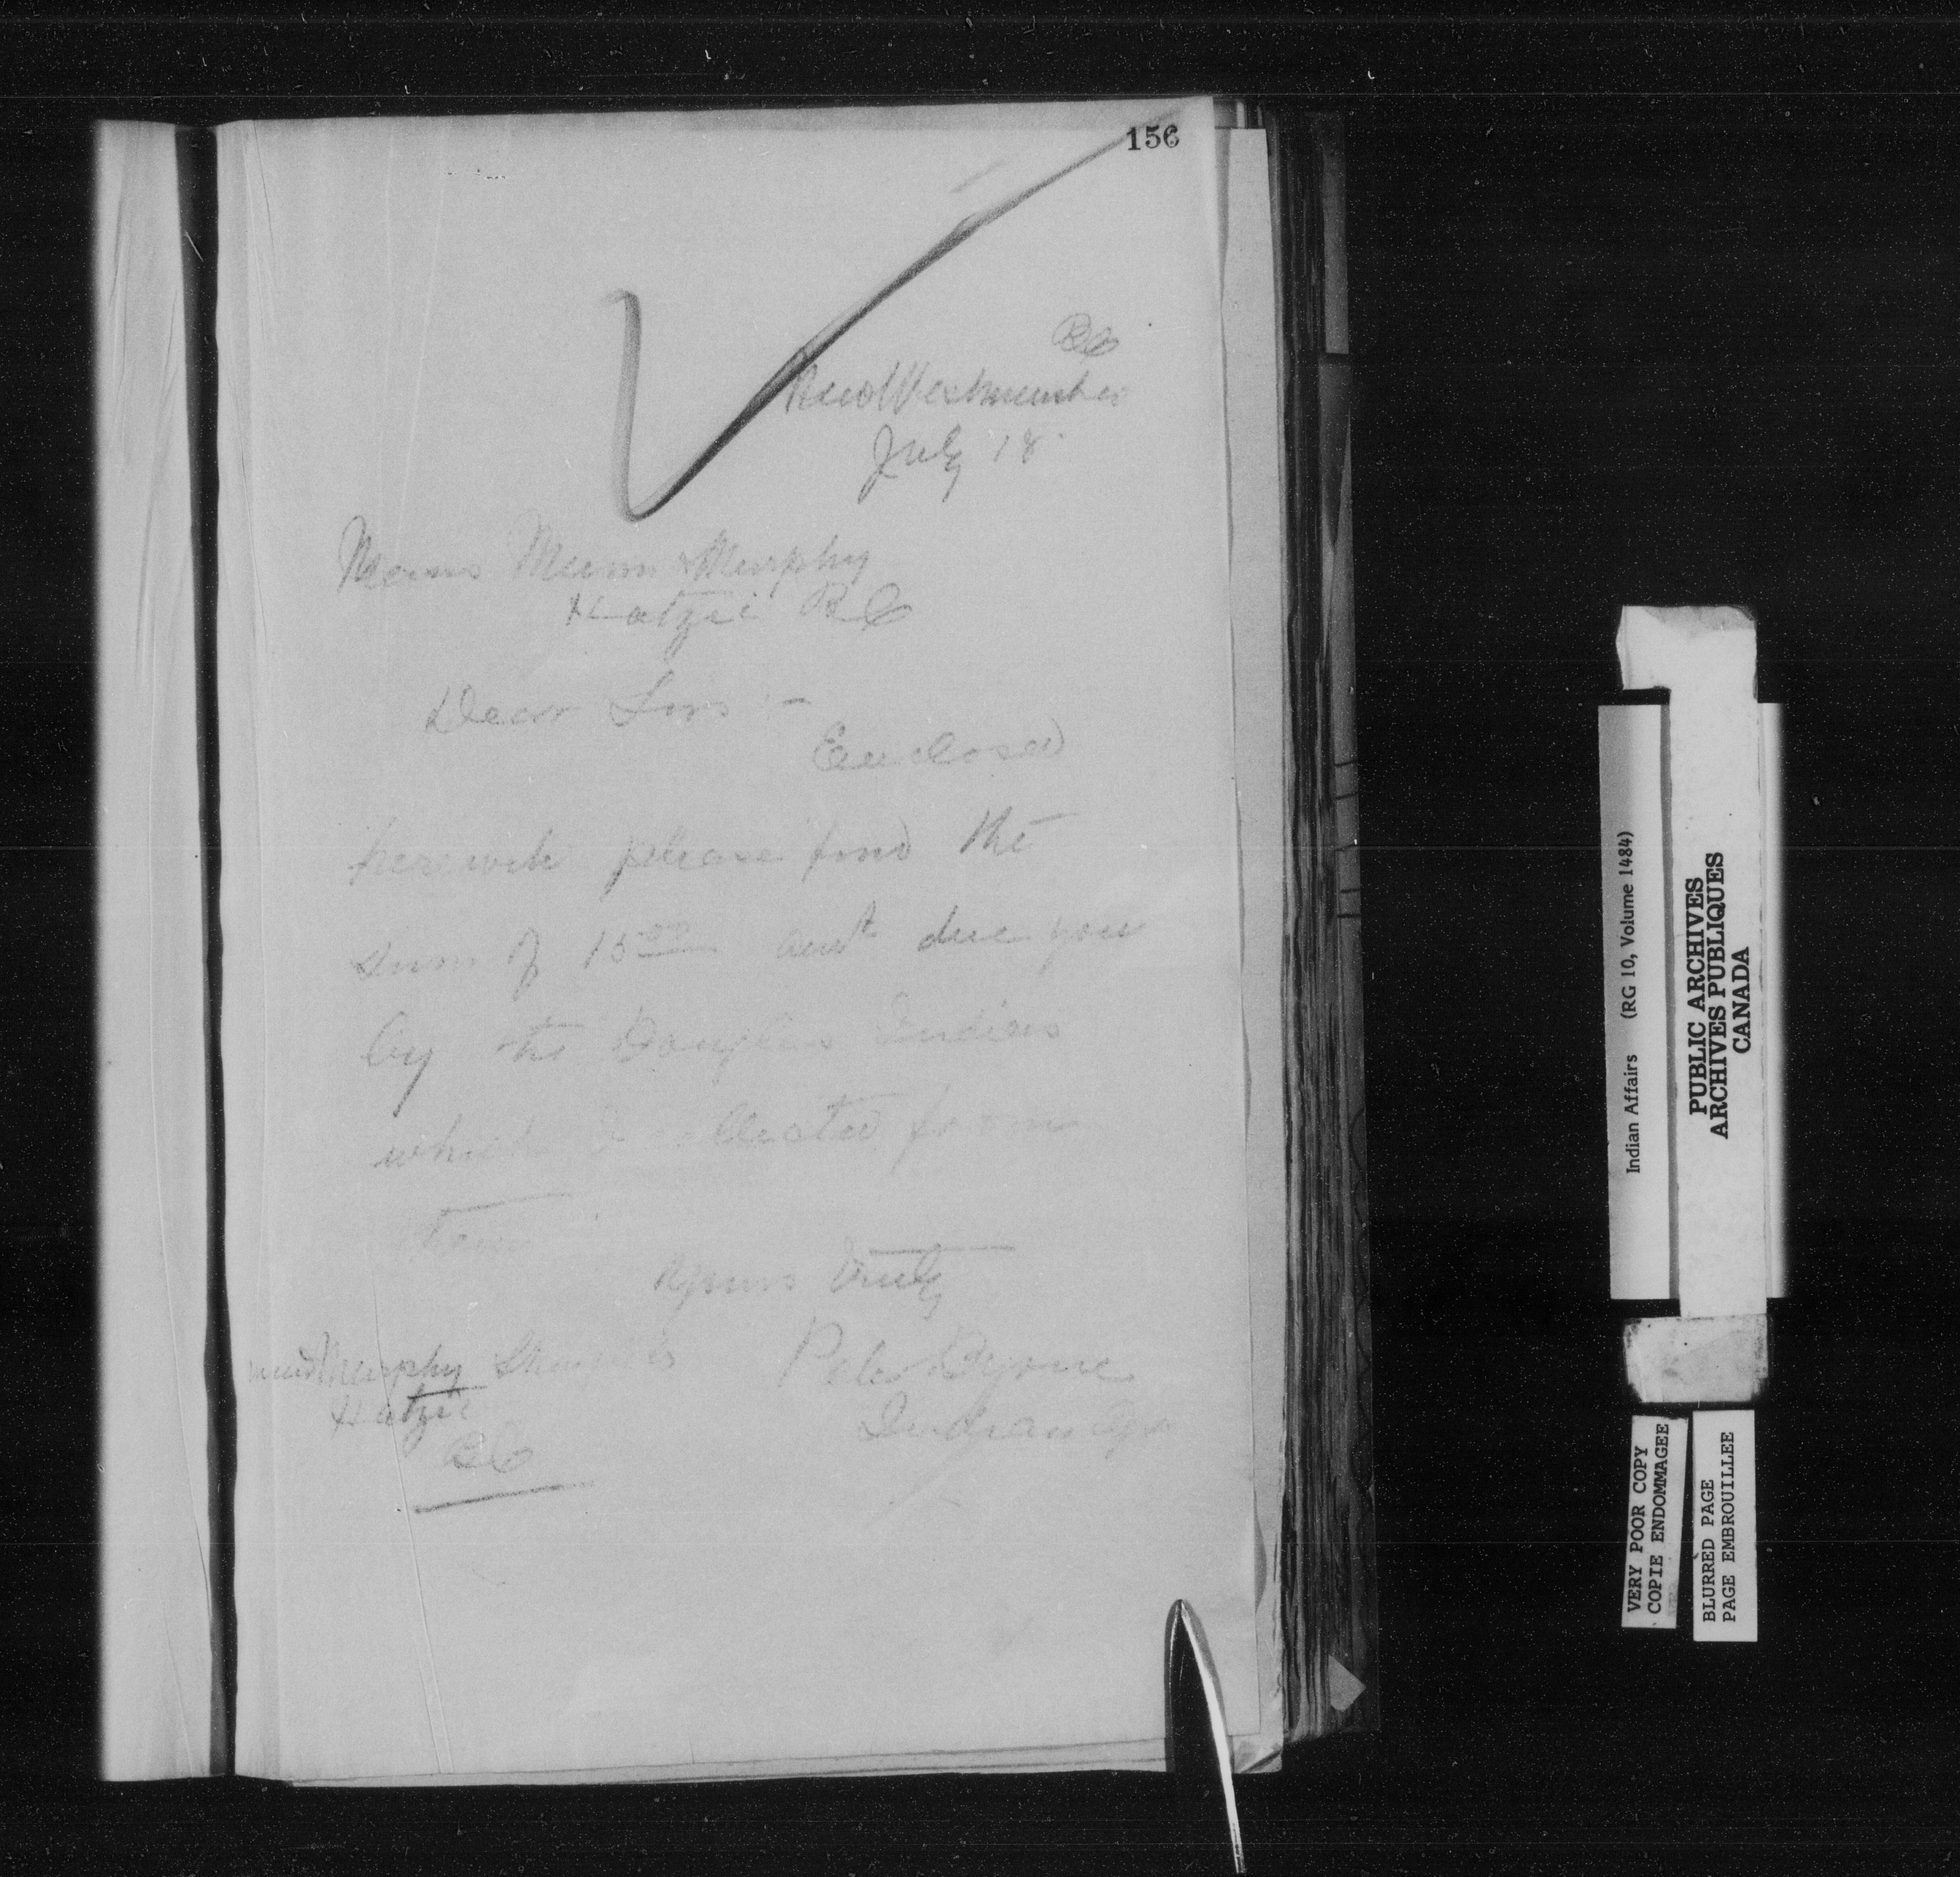 156
BC
New Westminster
July 18
Messrs Munn & Murphy
Hatzic BC
Dear Sirs :-
Enclosed
herewith please find the
sum of 15 00 amt due you
by the Douglas Indians
which I collected from
them
Yours Truly
Peter Byrne
Indian Agt
Murphy
Hatzic
BC
Indian Affairs (RG 10, Volume 1484)
PUBLIC ARCHIVES
ARCHIVES PUBLIQUES
CANADA
VERY POOR COPY
COPIE ENDOMMAGEE
BLURRED PAGE
PAGE EMBROUILLEE